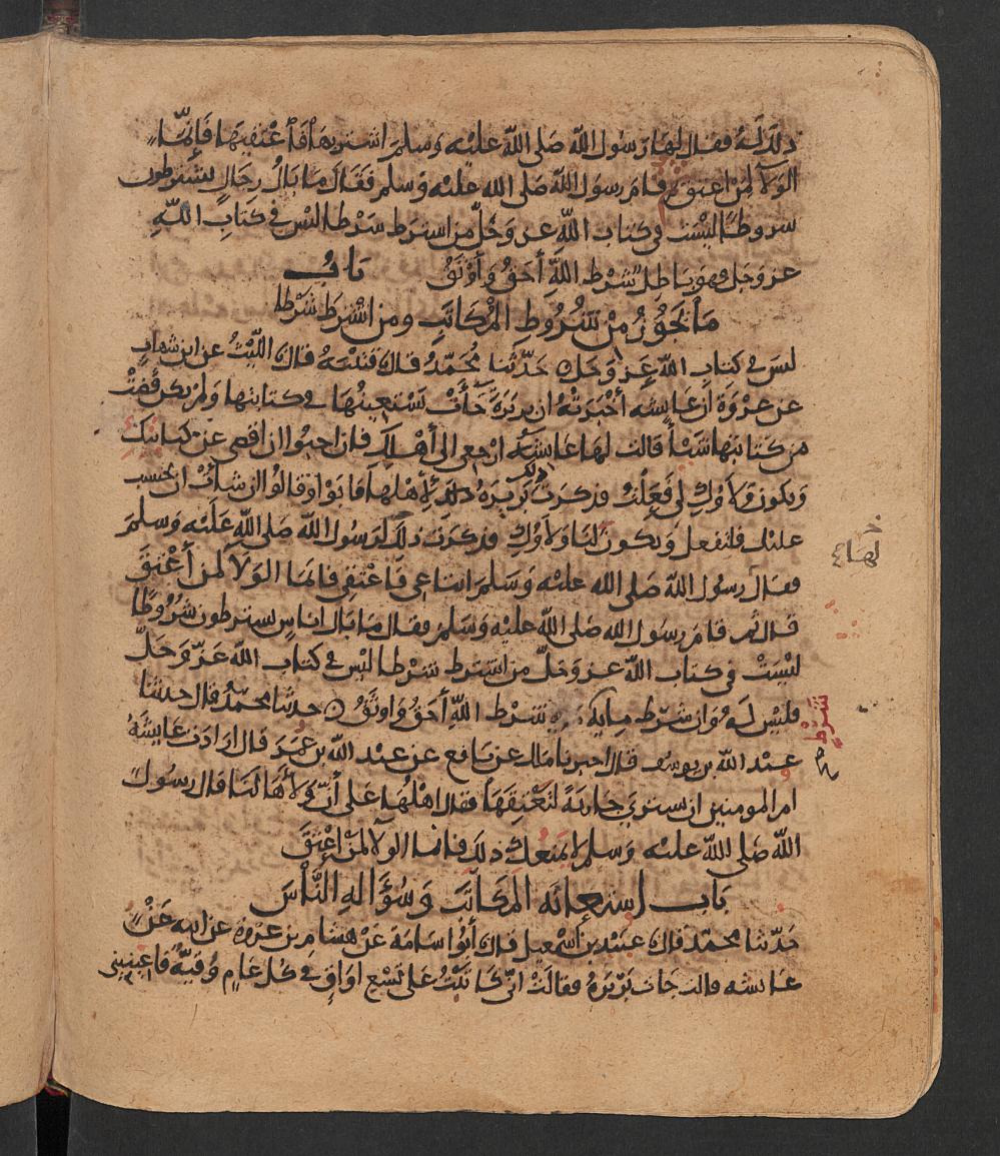 ذلك له فقال لها رسول الله صلى الله عليه وسلم اشتريها فأعتقيها فإنما
الولا لمن اعتق فقام رسول الله صلى الله عليه وسلم فقال ما بال رجال يشترطون
شروطا ليست في كتاب الله عز وجل من اشترط شرطا ليس في كتاب الله
عز وجل فهو باطل شرط الله أحق وأوثق باب
ما يجوز من شروط المكاتب ومن اشترط شرطا
ليس في كتاب الله عز وجل حدثنا محمد قال قتيبة قال الليث عن ابن شهاب
عن عروة ان عايشه أخبرته ان بريرة جات تستعينها في كتابتها ولم تكن قضت
من كتابتها شيأ قالت لها عايشه ارجعي الى أهلك فان احبوا ان اقضي عن كتابتك
ويكون ولاوك لي فعلت فذكرت ذلك بريره لأهلها فابوا وقالوا ان شات ان تحتسب
عليك فلتفعل ويكون لنا ولاوك فذكرت ذلك لرسول الله صلى الله عليه وسلم
لها
فقال رسول الله صلى الله عليه وسلم ابتاعي فاعتقي فانما الولا لمن أعتق
قال ثم قام رسول الله صلى الله عليه وسلم فقال ما بال اناس يشترطون شروطا
ليست في كتاب الله عز وجل من اشترط شرطا ليس في كتاب الله عز وجل
فليس له وان شرط مايه شرط الله أحق واوثق حدثنا محمد قال حدثنا
شرط
عبد الله بن يوسف قال اخبرنا مالك عن نافع عن عبد الله بن عمر قال ارادت عايشة
ام المومنين ان تشتري جارية لتعتقها فقال اهلها على أن ولاها لنا قال رسول
الله صلى الله عليه وسلم لا يمنعك ذلك فانما الولا لمن اعتق
باب استعانه المكاتب وسؤاله الناس
حدثنا محمد قال عبيد بن اسمعيل قال أبو اسامة عن هشام بن عروة عن ابيه عن
عايشه قالت جات بريرة فقالت اني كاتبت على تسع اواق في كل عام وقية فاعينيني